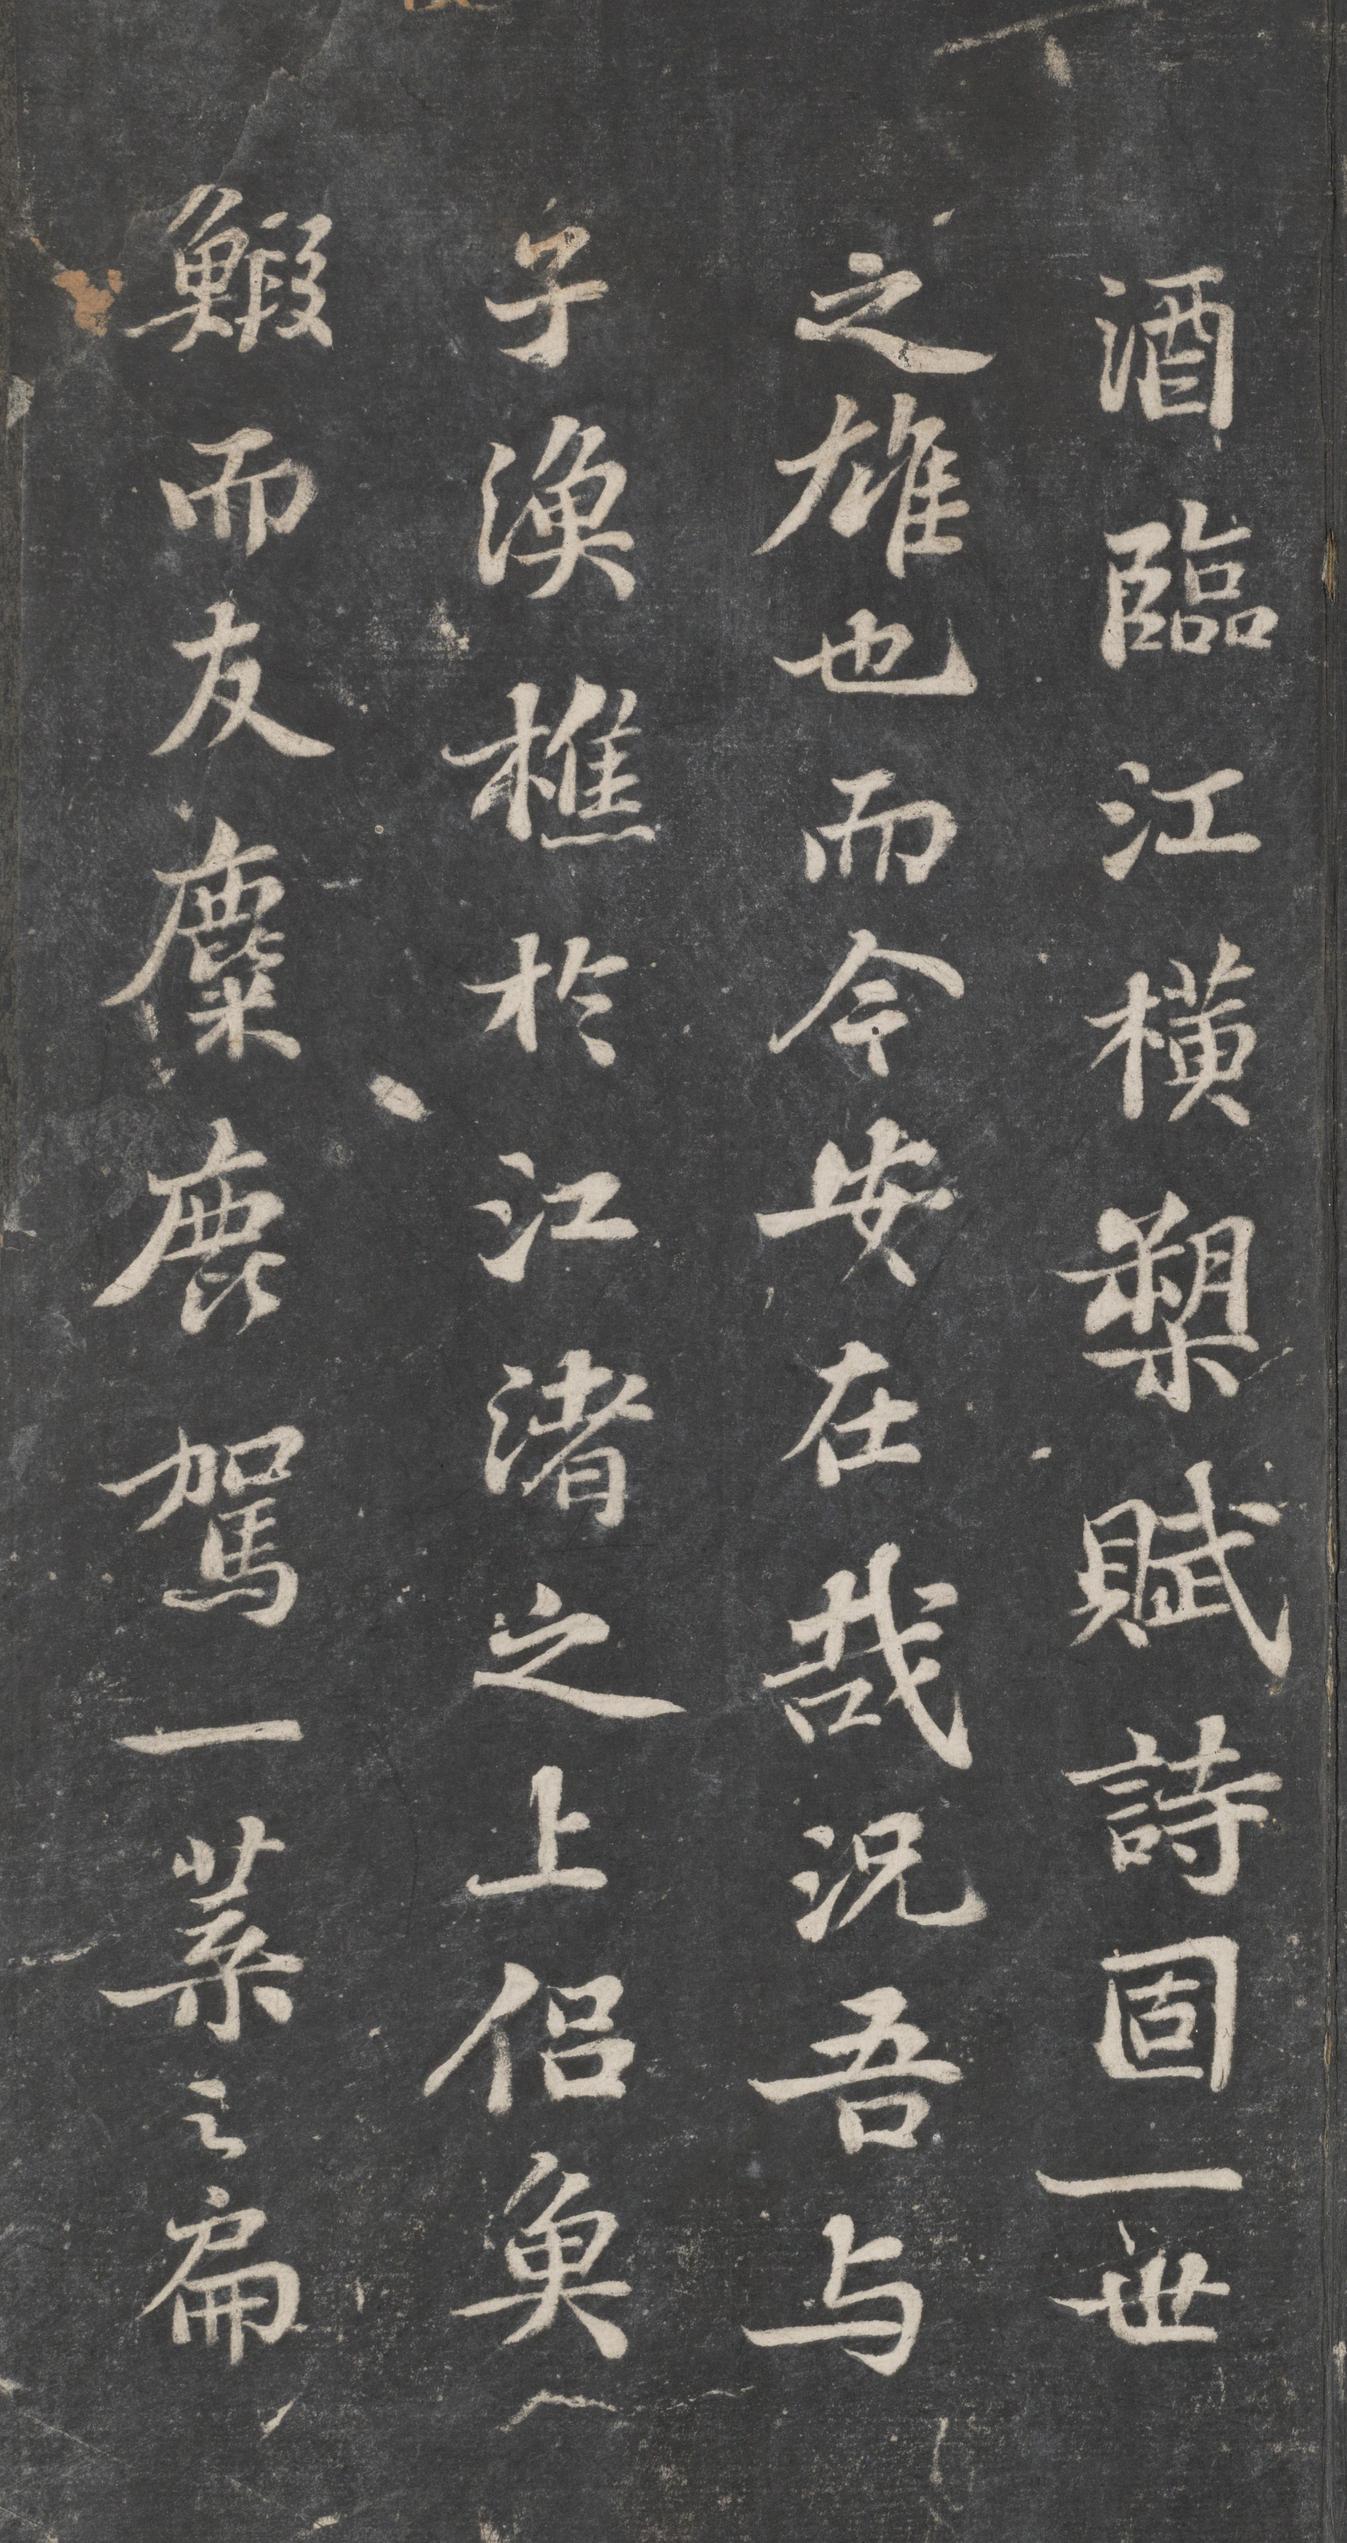 酒臨江橫槊賦詩固一世
之雄也而今安在哉況吾与
子漁樵於江渚之上侣魚
鰕而友麋鹿駕一葉之扁